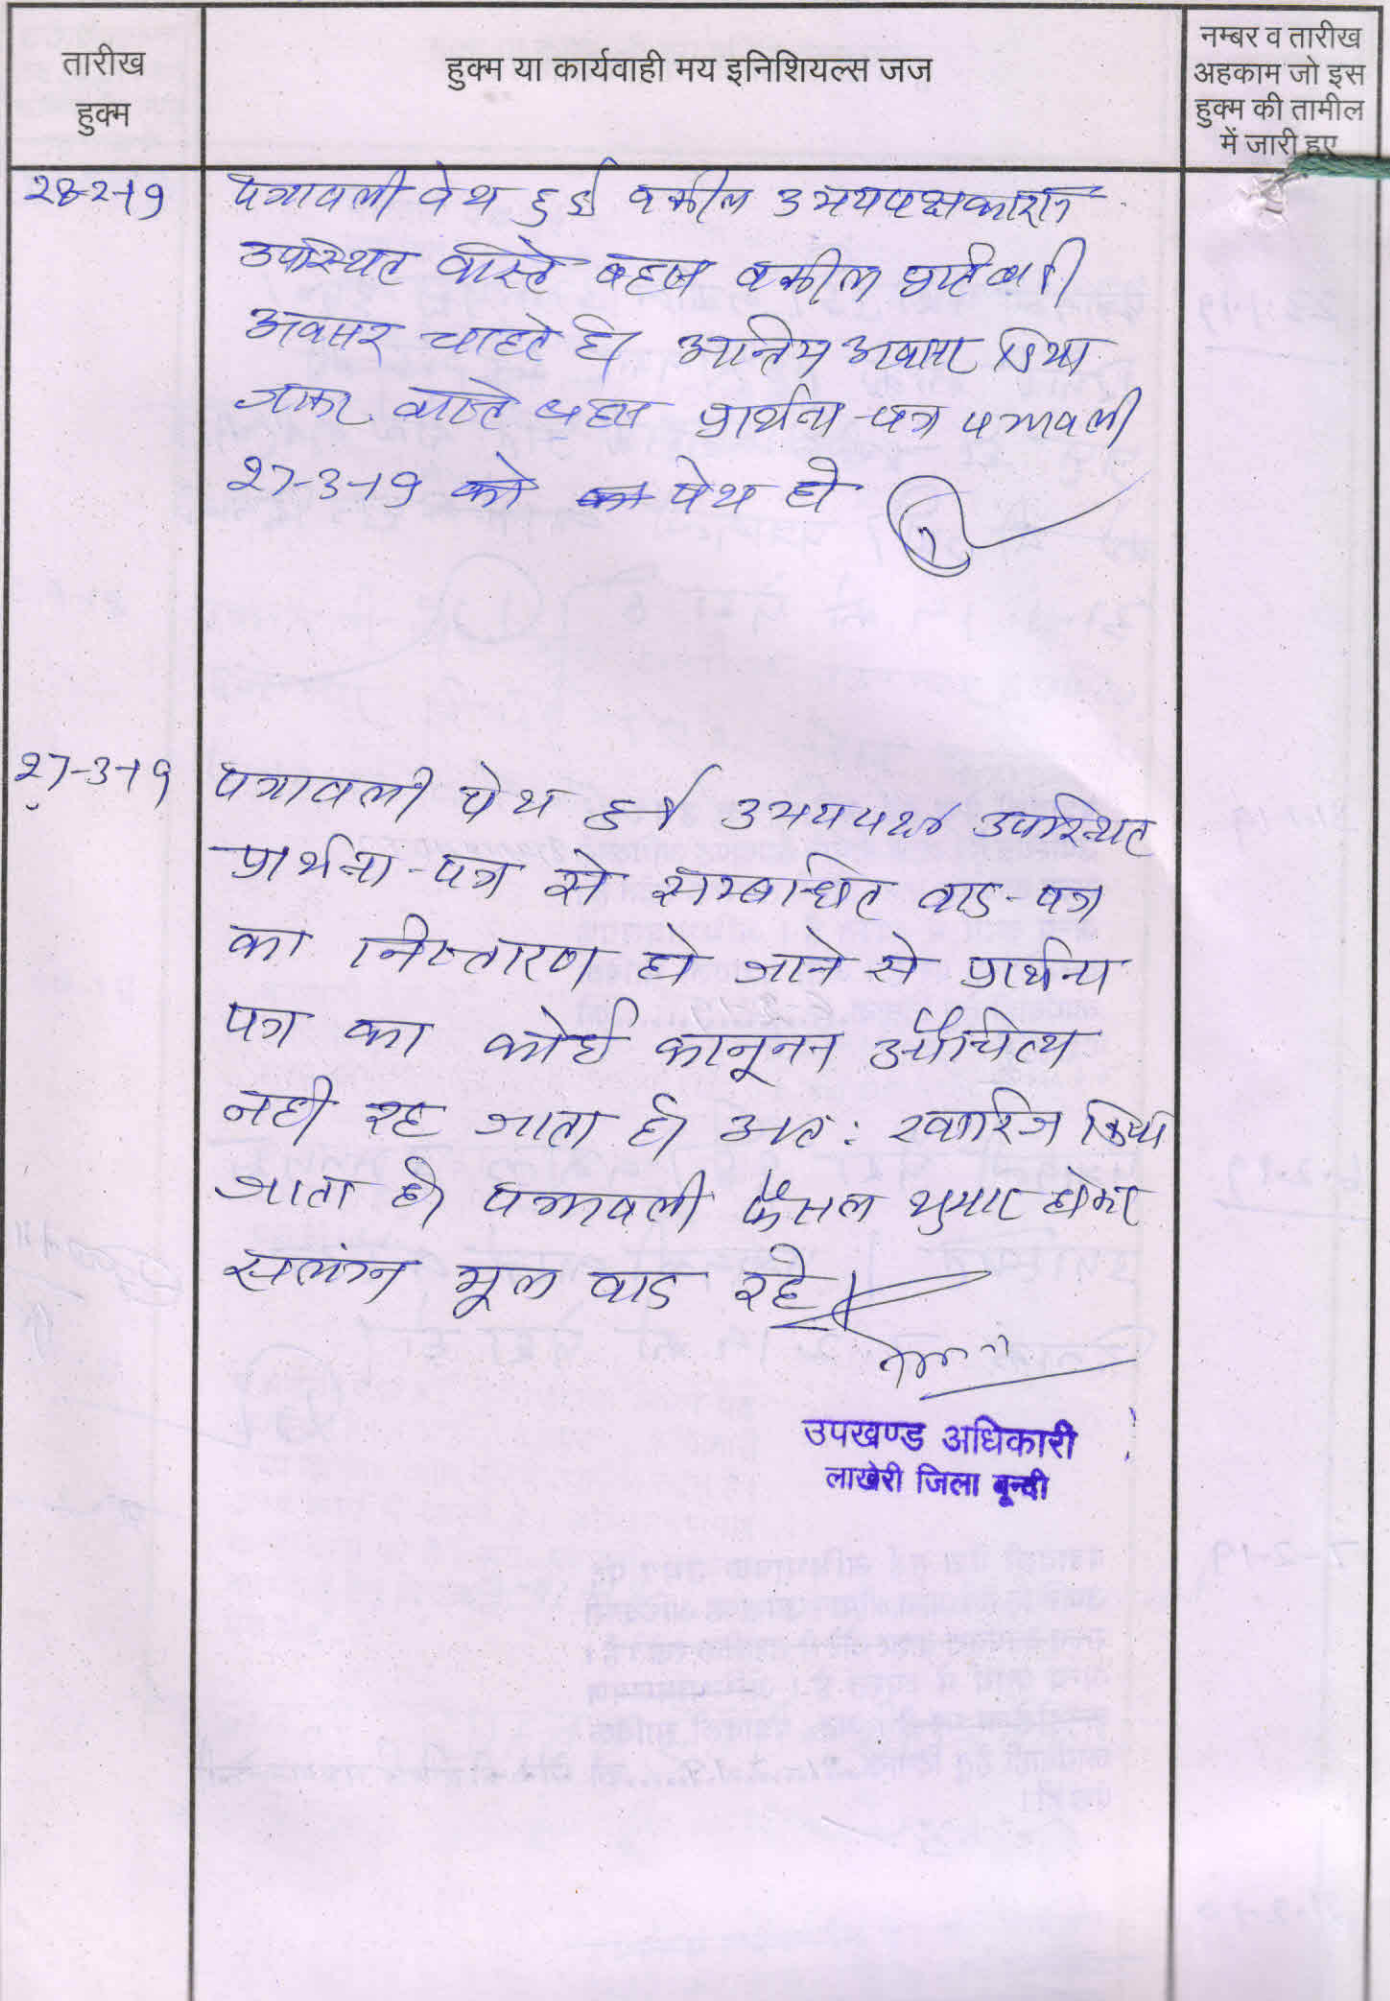 तारीख
हुक्म
हुक्म या कार्यवाही मय इनिशियल्स जज
नम्बर व तारीख
अहकाम जो इस
हुक्म की तामील
में जारी हुए
28-2-19
पत्रावली पेश हुई वकील उभयपक्षकारान
उपस्थित वास्ते बहस वकील प्रतिवादी
अवसर चाहते है। अन्तिम अवसर दिया
जाकर वास्ते बहस प्रार्थना-पत्र पत्रावली
27-3-19 को पेश हो
27-3-19
पत्रावली पेश हुई उभयपक्ष उपस्थित
प्रार्थना-पत्र से सम्बन्धित वाद-पत्र
का निस्तारण हो जाने से प्रार्थना
पत्र का कोई कानूनन औचित्य
नही रह जाता है। अतः खारिज किया
जाता है। पत्रावली फैसल शुमार होकर
सलंग्न मूल वाद रहे।
उपखण्ड अधिकारी
लाखेरी जिला बून्दी